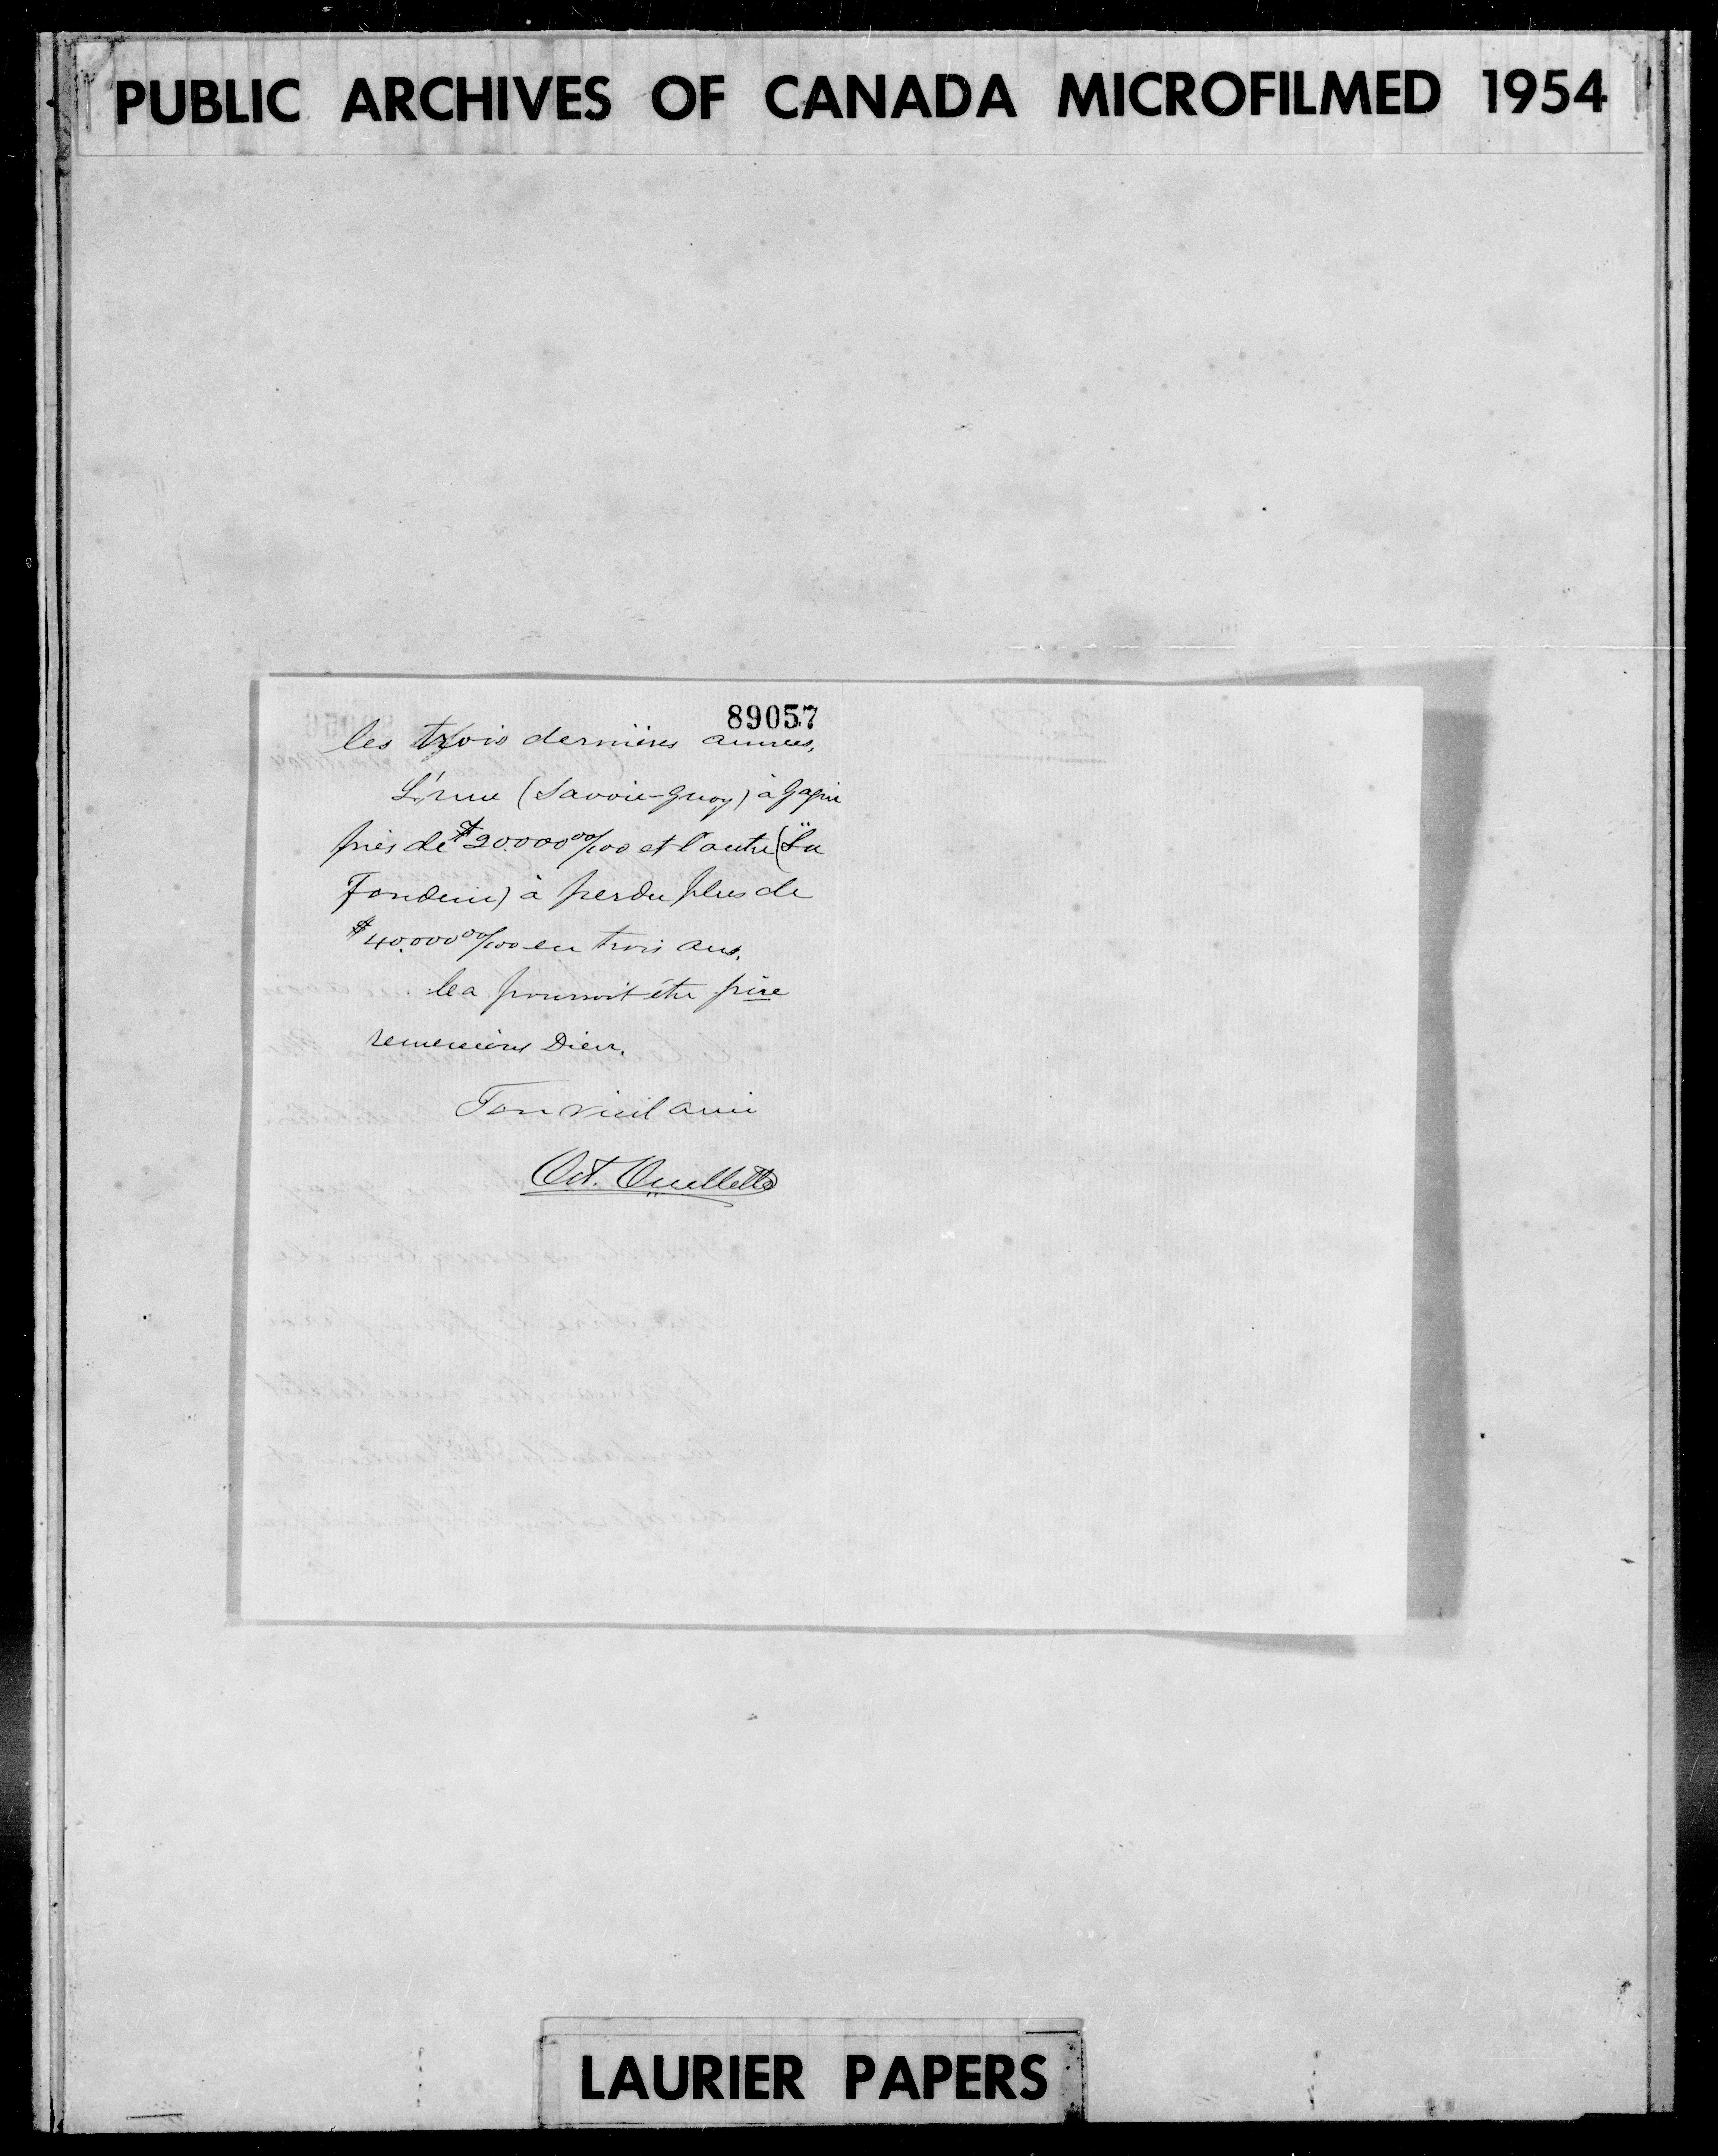 PUBLIC ARCHIVES OF CANADA MICROFILMED 1954
89057
les trois dernières années,
L'une (Savoie-Guay) à gagné
près de $20.000 00/100 et l'autre (La
Fonderie) à perdu plus de
$40.000 00/100 en trois ans.
Cea pourroit être pire
remercions Dieu.
Ton vieil ami
Oct. Ouellette
LAURIER PAPERS